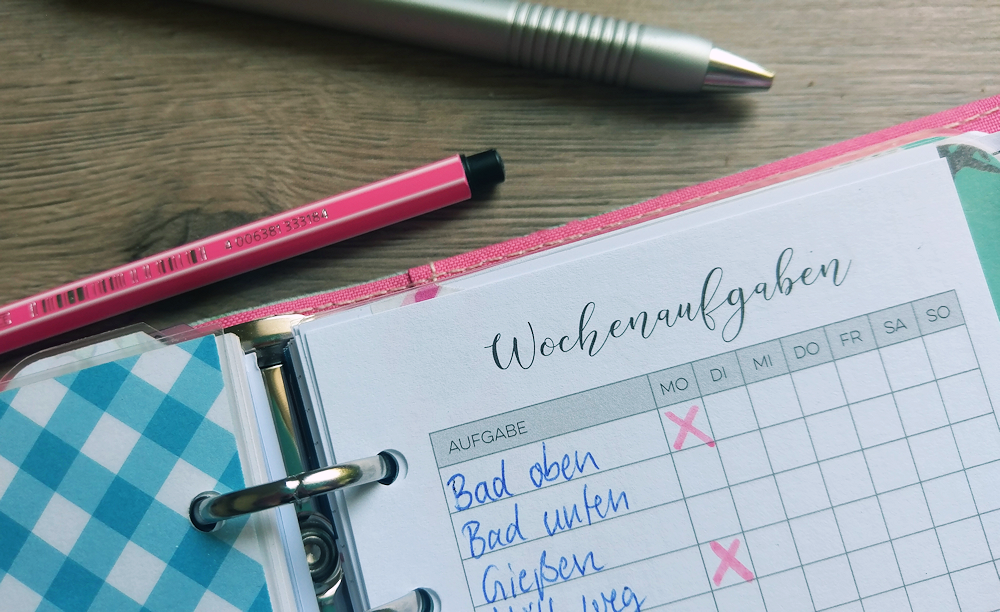 4 006381 333184
Wochenaufgaben
AUFGABE MO DI MI DO FR SA SO
Bad oben
Bad unten
Gießen
weg